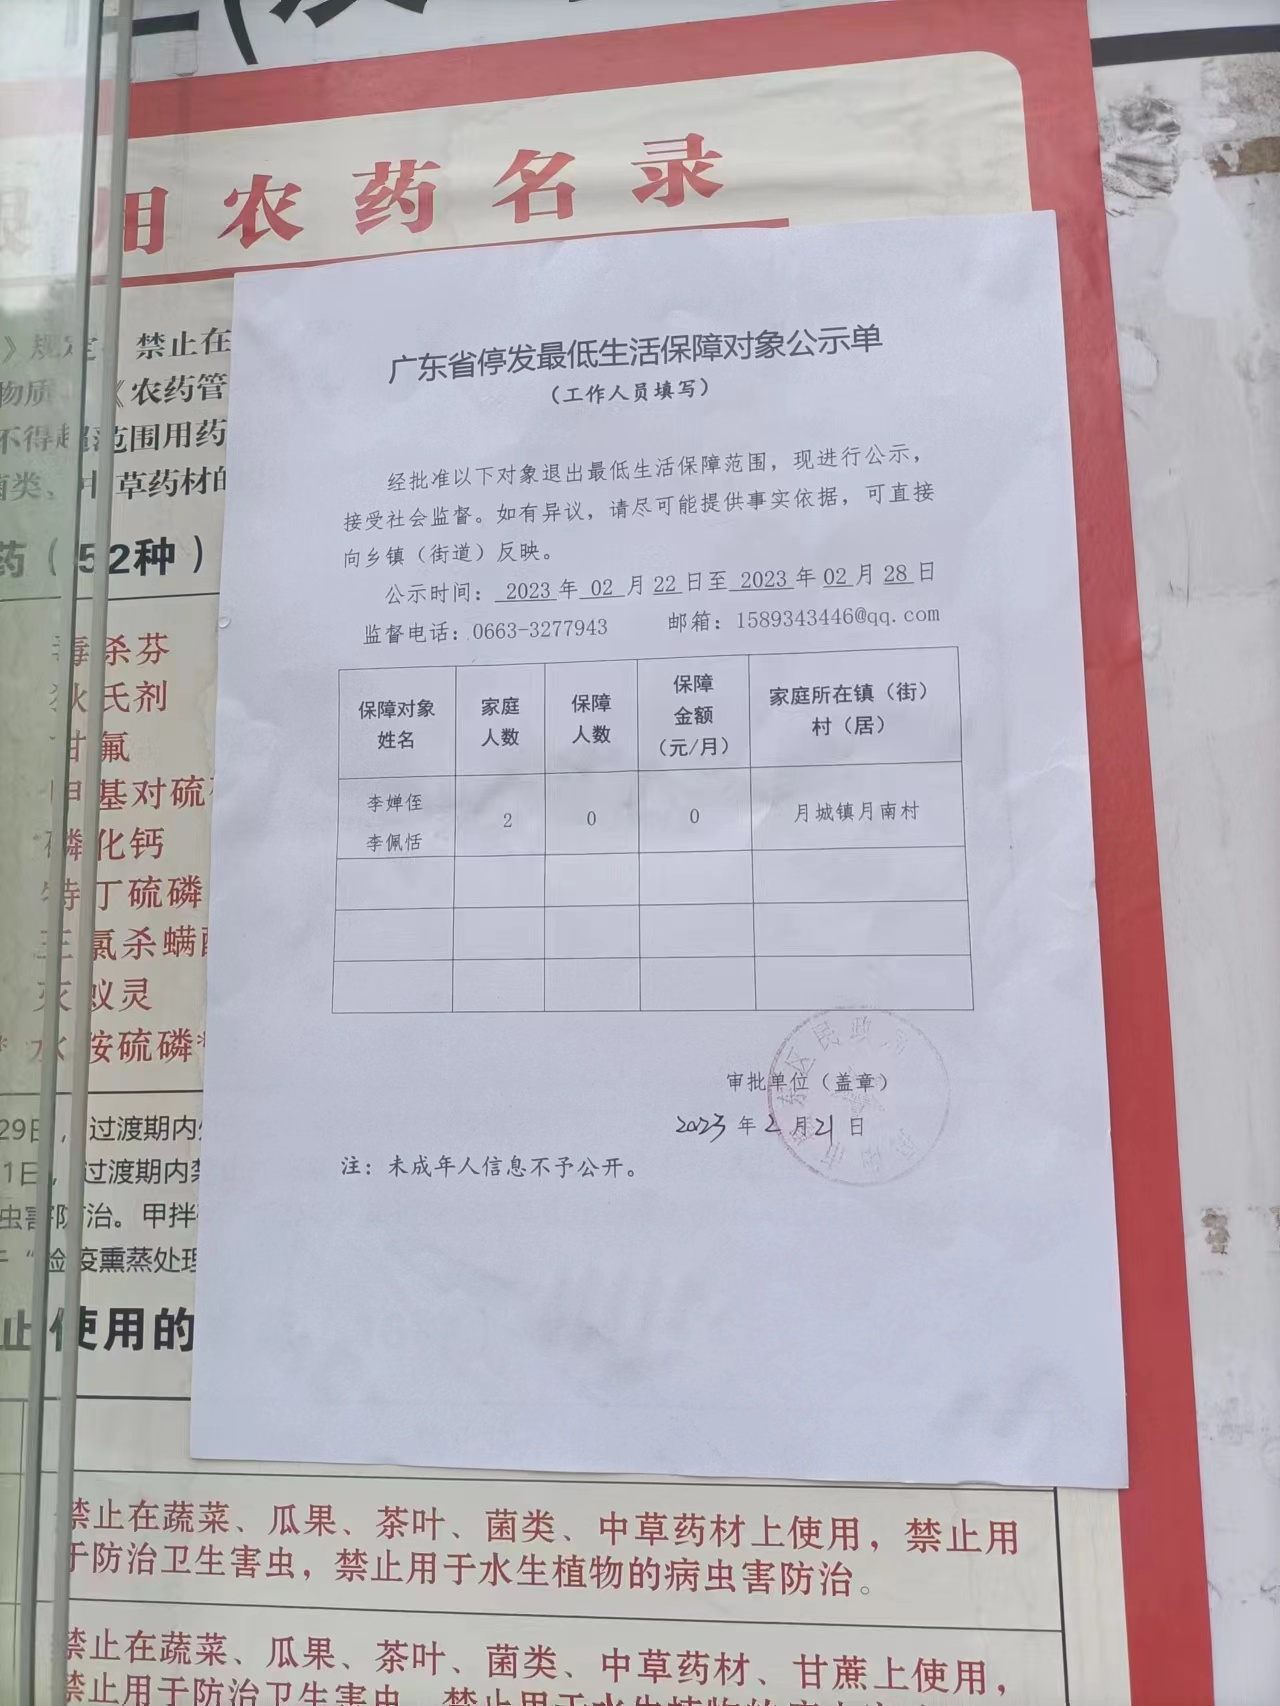 用农药名录
》规定 禁止在
物质 《农药管
不得超范围用药
菌类、中草药材的
药（52种）
毒杀芬
狄氏剂
甘氟
甲基对硫
磷化钙
特丁硫磷
三氯杀螨
灭蚁灵
水胺硫磷*
29日，过渡期内
1日，过渡期内禁
虫害防治。甲拌
“检疫熏蒸处理
止使用的
禁止在蔬菜、瓜果、茶叶、菌类、中草药材上使用，禁止用
于防治卫生害虫，禁止用于水生植物的病虫害防治。
禁止在蔬菜、瓜果、茶叶、菌类、中草药材、甘蔗上使用，
禁止用于防治卫生害虫，禁止用于水生植物的病虫害
广东省停发最低生活保障对象公示单
（工作人员填写）
经批准以下对象退出最低生活保障范围，现进行公示，
接受社会监督。如有异议，请尽可能提供事实依据，可直接
向乡镇（街道）反映。
公示时间：2023年02月22日至2023年02月28日
监督电话：0663-3277943 邮箱：1589343446@qq.com
保障对象姓名 家庭人数 保障人数 保障金额（元/月） 家庭所在镇（街）村（居）
李婵侄 李佩恬 2 0 0 月城镇月南村
区民政局
审批单位（盖章）
2023年2月21日
注：未成年人信息不予公开。